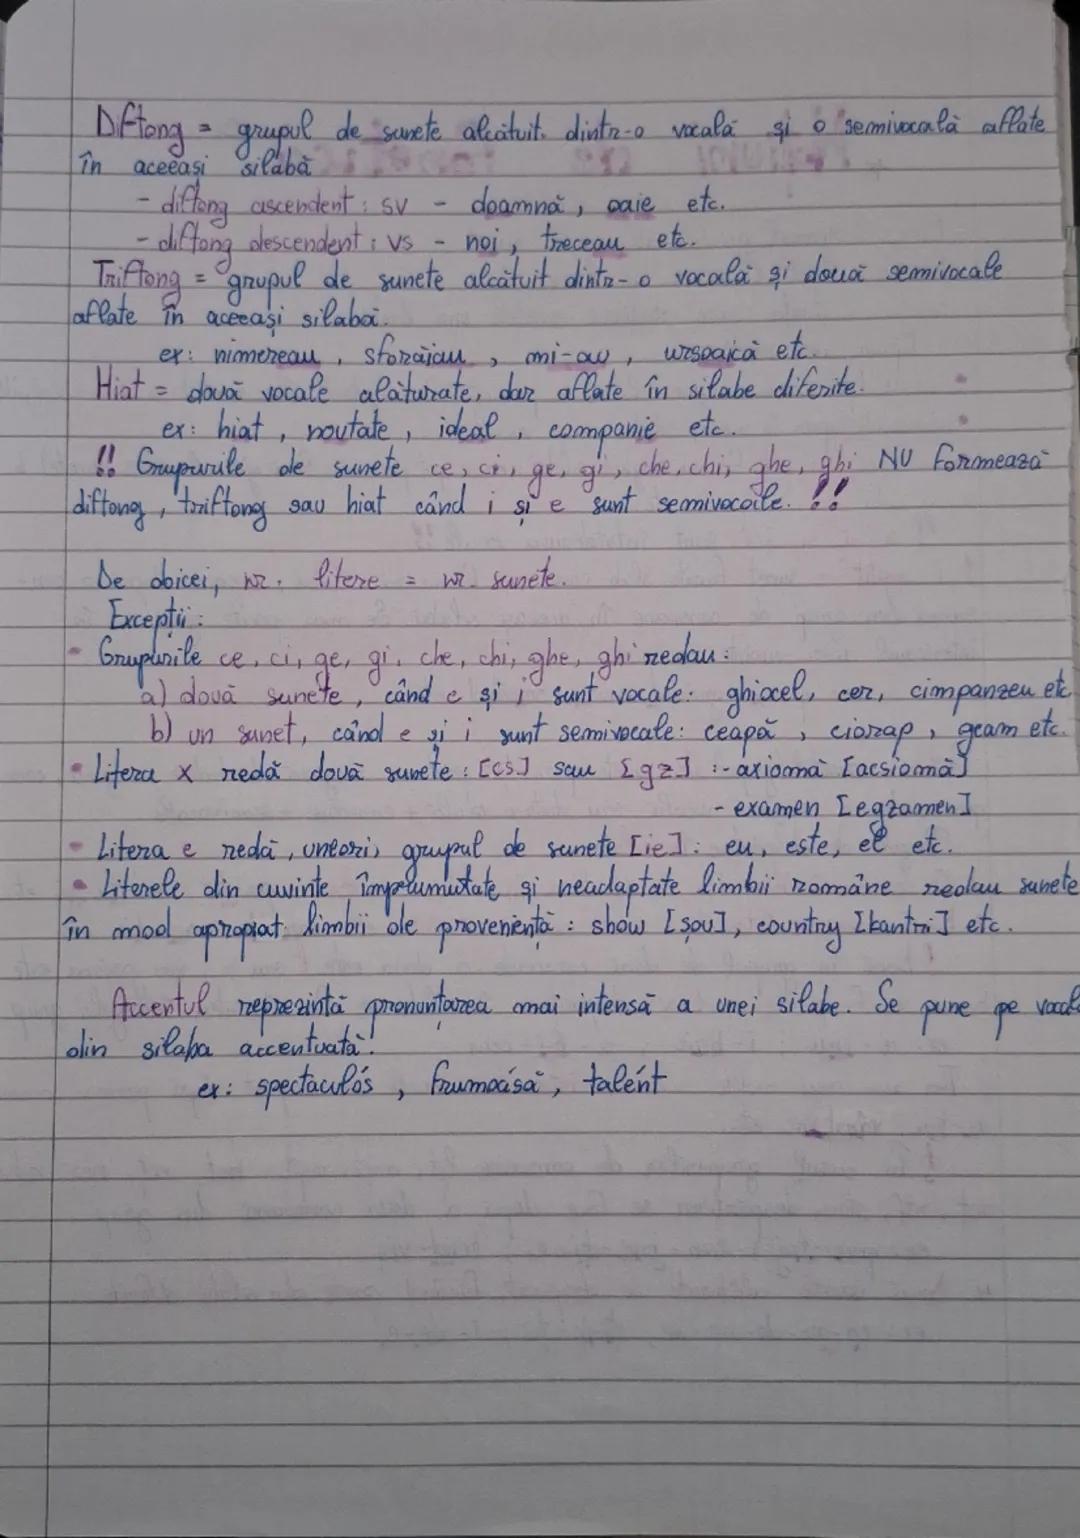 Diftong = grupul de sunete alcătuit dintr-o vocală și o semivocală aflate
în aceeași silabă
- diftong ascendent: SV - doamnă, oaie etc.
- diftong descendent: VS - noi, treceau etc.
Triftong = grupul de sunete alcătuit dintr-o vocală și două semivocale
aflate în aceeași silabă.
ex: nimereau, sforăiau, mi-au, ursoaică etc.
Hiat = două vocale alăturate, dar aflate în silabe diferite.
ex: hiat, noutate, ideal, companie etc.
!! Grupurile de sunete ce, ci, ge, gi, che, chi, ghe, ghi NU formează
diftong, triftong sau hiat când i și e sunt semivocale. !!
De obicei, nr. litere = nr. sunete.
Excepții:
• Grupurile ce, ci, ge, gi, che, chi, ghe, ghi redau:
a) două sunete, când e și i sunt vocale: ghiocel, cer, cimpanzeu etc
b) un sunet, când e și i sunt semivocale: ceapă, ciorap, geam etc.
• Litera x redă două sunete: [cs] sau [gz] :- axiomă [acsiomă]
- examen [egzamen]
• Litera e redă, uneori, grupul de sunete [ie]: eu, este, el etc.
• Literele din cuvinte împrumutate și neadaptate limbii române redau sunete
în mod apropiat limbii de proveniență: show [șou], country [kantri] etc.
Accentul reprezintă pronunțarea mai intensă a unei silabe. Se pune pe vocala
din silaba accentuată.
ex: spectaculós, frumoásă, talént